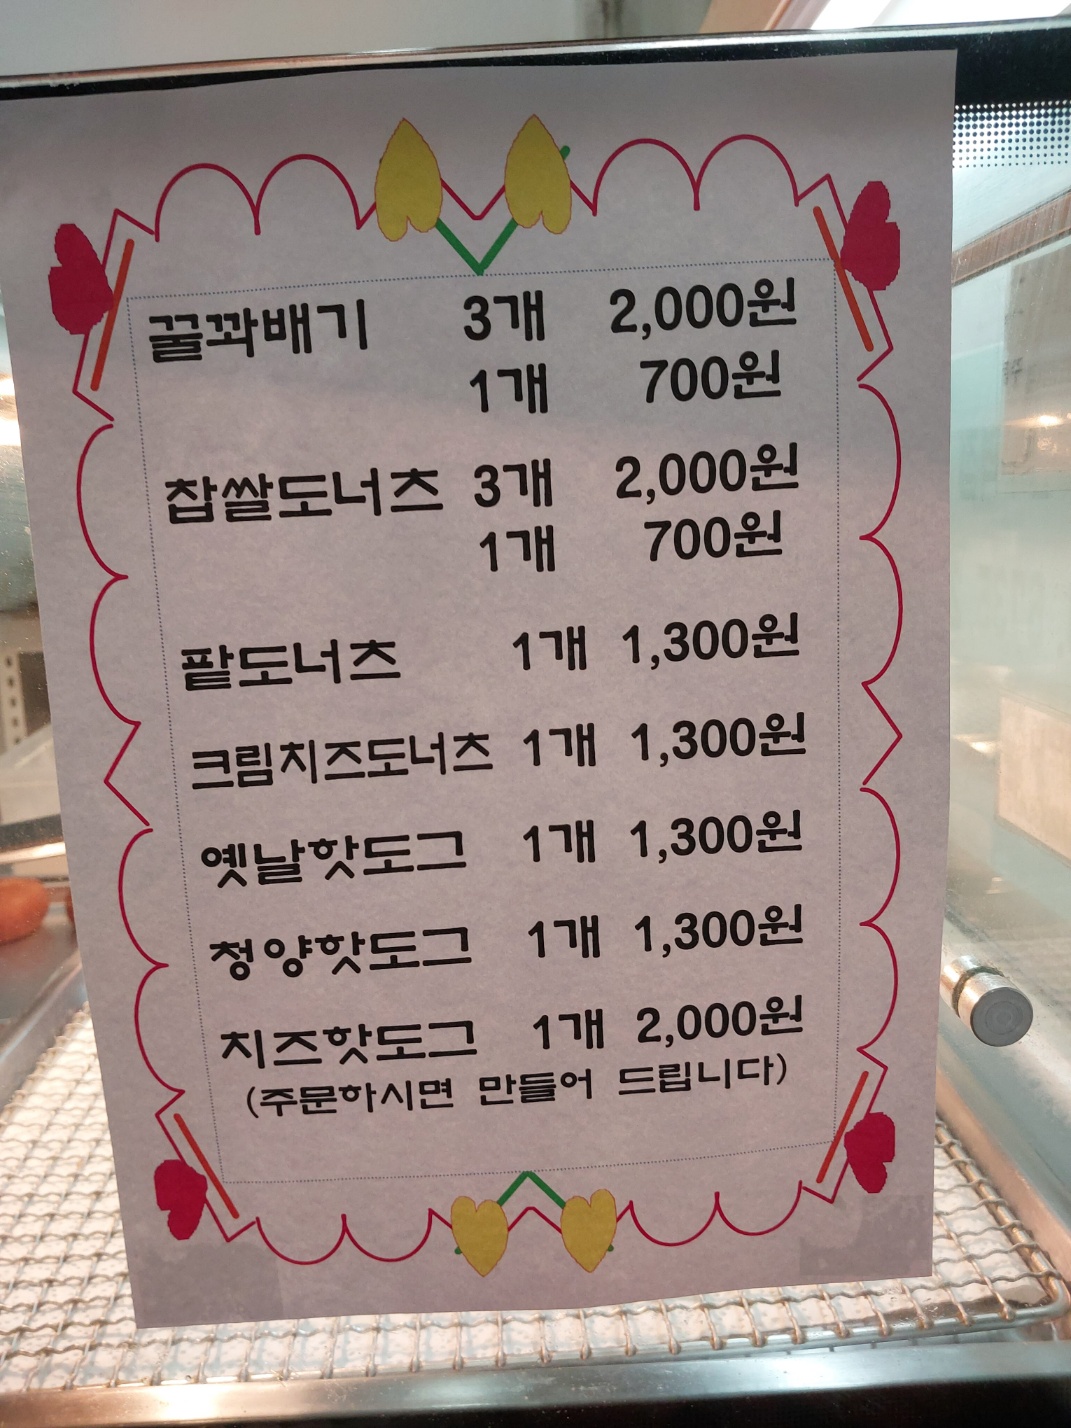 꿀꽈배기 3개 2,000원
1개 700원
찹쌀도너츠 3개 2,000원
1개 700원
팥도너츠 1개 1,300원
크림치즈도너츠 1개 1,300원
옛날핫도그 1개 1,300원
청양핫도그 1개 1,300원
치즈핫도그 1개 2,000원
(주문하시면 만들어 드립니다)